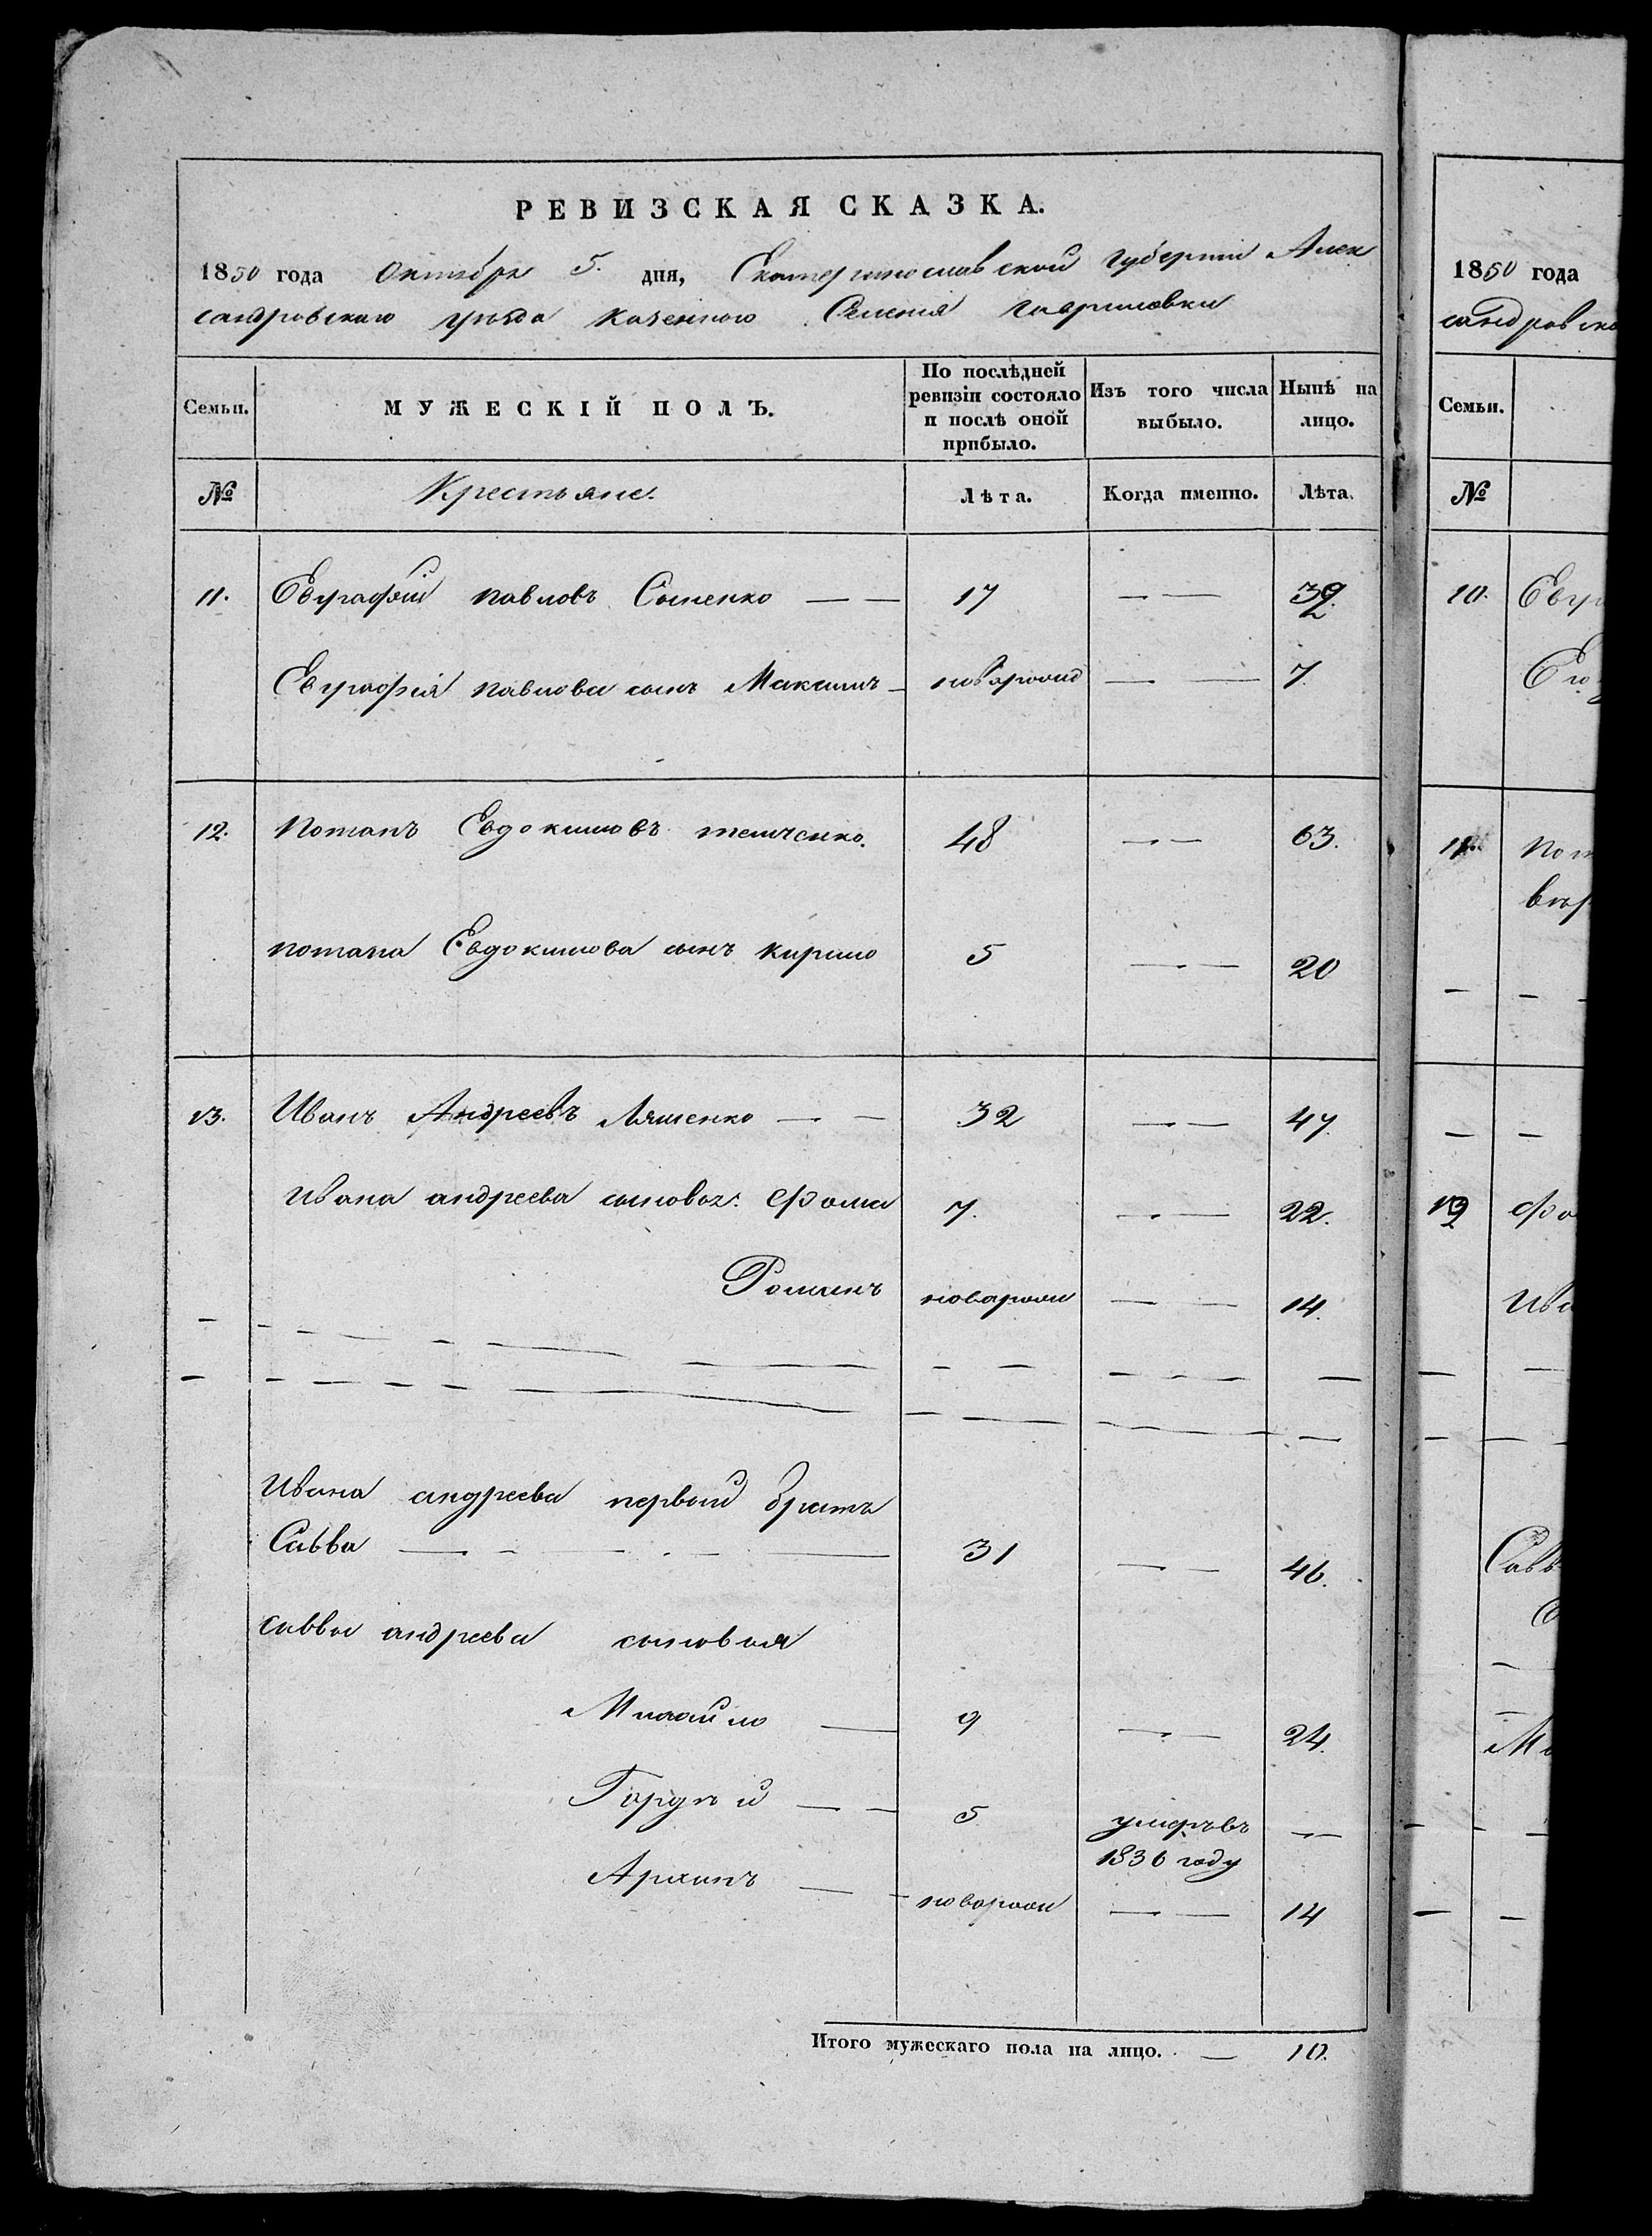 РЕВИЗСКАЯ СКАЗКА.
1850 года Октября 5. дня, Екатеринославской губернии Алек
сандровскаго уѣзда казенного Селения Гавриловки
Семьи.
МУЖЕСКІЙ ПОЛЪ.
По послѣдней ревизіи состояло и послѣ оной прибыло.
Изъ того числа выбыло.
Нынѣ на лицо.
№ Крестьяне. Лѣта. Когда именно. Лѣта.
11. Евграфій павловъ 17 — — 32
Евграфія павлова сынъ Максимъ — — — 7.
12. Потапъ Евдокимовъ темченко. 48 — — 63.
потапа Евдокимова сынъ Кирило 5 — — 20
13. Иванъ Андреевъ Ляшенко — — 32 — — 47.
Ивана андреева сыновья: Фома 7. — — 22.
Романъ новорож — — 14.
Ивана андреева первый братъ
Савва — 31 — — 46.
саввы андреева сыновья
Михайло — 9 — — 24.
Гордѣй — — 5 умеръ въ —
1836 году
Архипъ — — новорож — — 14
Итого мужескаго пола на лицо. — 10.
1850 года
сандровска
Семьи.
№
10. Евгр
Его
11. Пот
вто
12 Фо
Ива
Савв
Ми